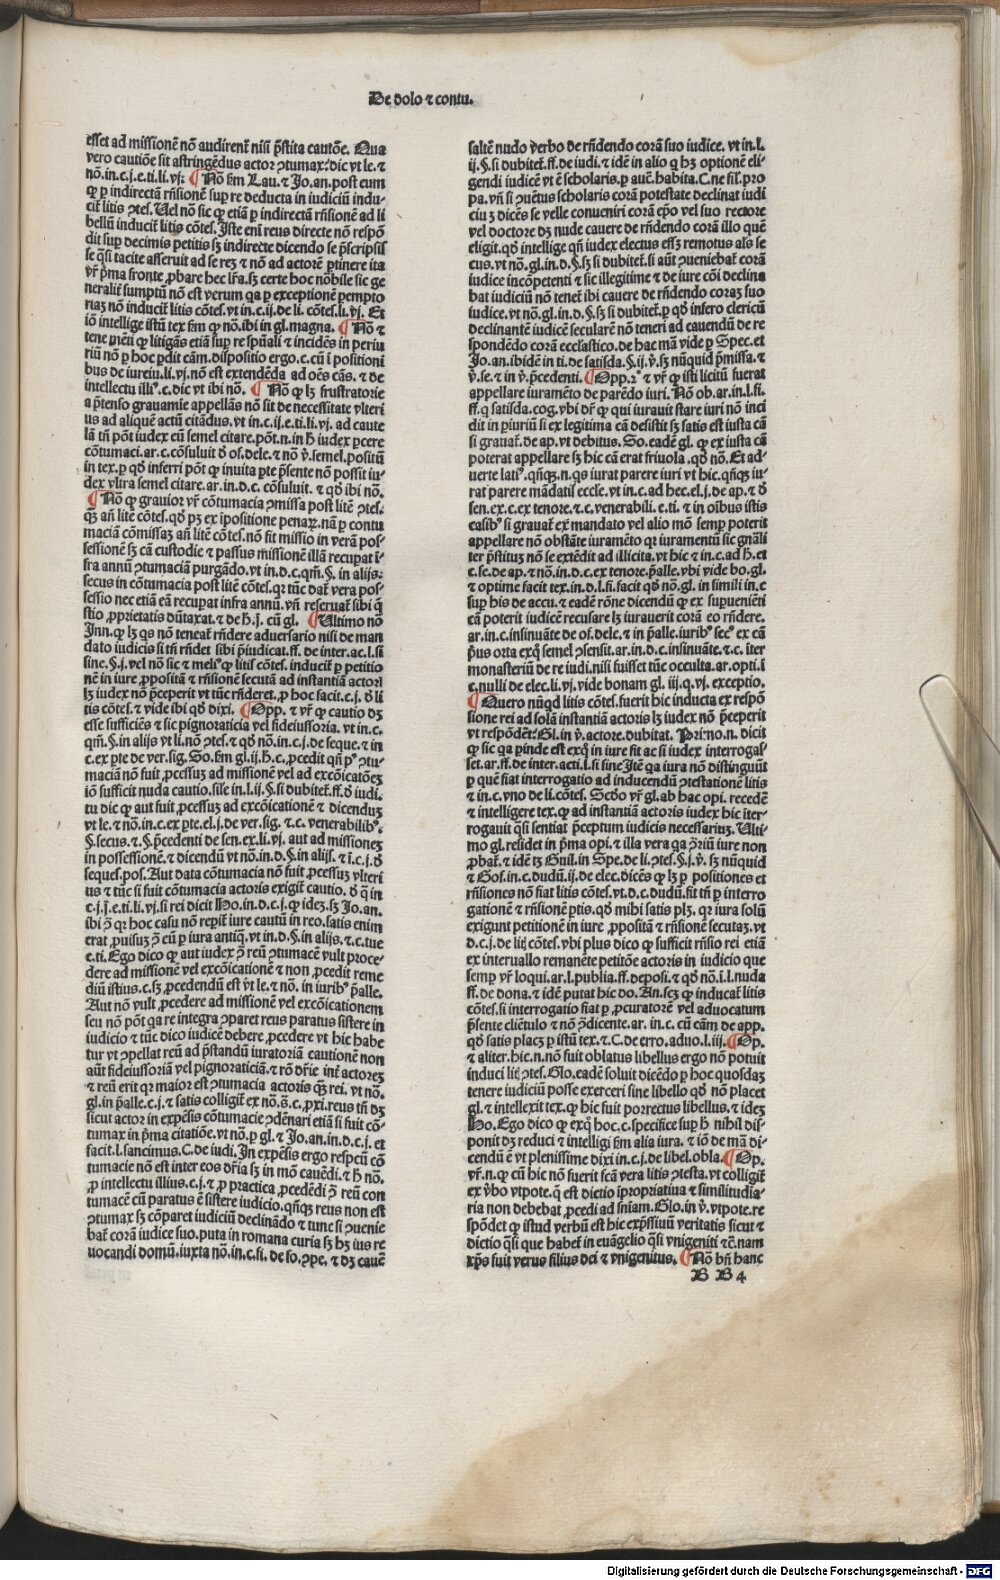 De dolo ⁊ contu.
esset ad missionē nō audirent̄ nisi p̄stita cautōe. Qua
vero cautiōe sit astringēdus actor ꝯtumax: dic vt le. ⁊
nō. in. c. j. e. ti. li. vj. ¶ Nō ẜm Lau. ⁊ Jo. an. post eum
ꝙ ꝑ indirectā rn̄sionē sup re deducta in iudiciū indu-
cit̄ litis ꝯtes. Uel nō sic ꝙ etiā ꝑ indirectā rn̄sionē ad li
bellū inducit̄ litis cōtes. Iste eni reus directe nō respō
dit sup decimis petitis sꝫ indirecte dicendo se p̄scripsis
se q̄si tacite asseruit ad se reꝫ ⁊ nō ad actorē ꝑtinere ita
vr̄ pma fronte ꝓbare hec lr̄a. sꝫ certe hoc nōbile sic ge
neralit̄ sumptū nō est verum qa ꝑ exceptionē pempto
riaꝫ nō inducit̄ litis cōtes. vt in. c. ij. de li. cōtes. li. vj. Et
iō intellige istū tex ẜm ꝙ nō. ibi in gl. magna. ¶ Nō ⁊
tene mēti ꝙ litigās etiā sup re spūali ⁊ incidēs in periu
riū nō ꝑ hoc ꝑdit cām. dispositio ergo. c. cū ī positioni
bus de iureiu. li. vj. nō est extendēda ad oēs cās. ⁊ de
intellectu illiꝰ. c. dic vt ibi nō. ¶ Nō ꝙ lꝫ frustratorie
a p̄tenso grauamie appellās nō sit de necessitate vlteri
us ad aliquē actū citādus. vt in. c. ij. e. ti. li. vj. ad caute
lā tn̄ pōt iudex eū semel citare. pōt. n. in h̄ iudex ꝑcere
cōtumaci. ar. c. cōsuluit ď of. dele. ⁊ nō v̄. semel. positū
in tex. ꝑ qď inferri pōt ꝙ inuita pte p̄sente nō possit iu-
dex vltra semel citare. ar. in. d. c. cōsuluit. ⁊ qď ibi nō.
¶ Nō ꝙ grauior vr̄ cōtumacia ꝯmissa post litē ꝯtes.
qꝫ an̄ litē cōtes. qď pꝫ ex īpositione penaꝝ. nā ꝑ contu
maciā cōmissaꝫ an̄ litē cōtes. nō fit missio in verā pos-
sessionē sꝫ cā custodie ⁊ passus missionē illā recupat ī-
fra annū ꝯtumaciā purgādo. vt in. d. c. qm̄. §. in alijs.
secus in cōtumacia post litē cōtes. qr tūc dat̄ vera pos-
sessio nec etiā eā recupat infra annū. vn̄ reseruat̄ sibi q̄
stio ꝓprietatis dūtaxat. ⁊ de h̄. j. cū gl. ¶ Ultimo nō
Inn. ꝙ lꝫ qs nō teneat̄ rn̄dere aduersario nisi de man
dato iudicis si tn̄ rn̄det sibi p̄iudicat. ff. de inter. ac. l. si
sine. §. j. vel nō sic ⁊ meliꝰ ꝙ litis cōtes. inducit̄ ꝑ petitio
nē in iure ꝓpositā ⁊ rn̄sionē secutā ad instantiā actori
lꝫ iudex nō p̄ceperit vt tūc rn̄deret. ꝓ hoc facit. c. j. ď li
tis cōtes. ⁊ vide ibi qď dixi. ¶ Opp. ⁊ vr̄ ꝙ cautio dꝫ
esse sufficiēs ⁊ sic pignoraticia vel fideiussoria. vt in. c.
qm̄. §. in alijs vt li. nō ꝯtes. ⁊ qď nō. in. c. j. de seque. ⁊ in
c. ex pte de ver. sig. So. ẜm gl. ij. h̄. c. ꝓcedit qn̄ pꝰ ꝯtu-
maciā nō fuit ꝓcessuꝫ ad missionē vel ad excōicatōeꝫ
iō sufficit nuda cautio. sile in. l. ij. §. si dubitet̄. ff. ď iudi.
tu dic ꝙ aut fuit ꝓcessuꝫ ad excōicationē ⁊ dicenduꝫ
vt le. ⁊ nō. in. c. ex pte. el. j. de ver. sig. ⁊. c. venerabilibꝰ.
§. secus. ⁊. §. p̄cedenti de sen. ex. li. vj. aut ad missioneꝫ
in possessionē. ⁊ dicendū vt nō. in. d. §. in alijs. ⁊ ī. c. j. ď
seques. pos. Aut data cōtumacia nō fuit ꝓcessuꝫ vlteri
us ⁊ tūc si fuit cōtumacia actoris exigit̄ cautio. ď q̄ in
c. j. j. e. ti. li. vj. si rei dicit Ho. in. d. c. j. ꝙ ideꝫ. sꝫ Jo. an.
ibi ꝯ̄ qr hoc casu nō repit̄ iure cautū in reo. satis enim
erat ꝓuisuꝫ ꝯ̄ eū ꝑ iura antiq̄. vt in. d. §. in alijs. ⁊. c. tue
e. ti. Ego dico ꝙ aut iudex ꝯ̄ reū ꝯtumacē vult proce-
dere ad missionē vel excōicationē ⁊ non ꝓcedit reme
diū istius. c. sꝫ ꝓcedendū est vt̄ le. ⁊ nō. in iuribꝰ p̄alle.
Aut nō vult ꝓcedere ad missionem vel excōicationem
seu nō pōt qa re integra ꝯparet reus paratus sistere in
iudicio ⁊ tūc dico iudicē debere ꝓcedere vt hic habe
tur vt ꝯpellat reū ad p̄standū iuratoriā cautionē non
aūt fideiussoriā vel pignoraticiā. ⁊ rō dr̄ie int̄ actoreꝫ
⁊ reū erit qr maior est ꝯtumacia actoris qꝫ rei. vt nō.
gl. in p̄alle. c. j. ⁊ satis colligit̄ ex nō. s̄. c. ꝓxi. reus tn̄ dꝫ
sicut actor in expēsis cōtumacie ꝯdēnari etiā si fuit cō-
tumax in pma citatiōe. vt nō. ꝑ gl. ⁊ Jo. an. in. d. c. j. et
facit. l. sancimus. C. de iudi. In expēsis ergo respcū cō
tumacie nō est inter eos dr̄ia sꝫ in mō cauēdi. ⁊ h̄ nō.
ꝓ intellectu illius. c. j. ⁊ ꝓ practica ꝓcedēdi ꝯ̄ reū con
tumacē cū paratus ē sistere iudicio. qn̄qꝫ reus non est
ꝯtumax sꝫ cōparet iudiciū declinādo ⁊ tunc si ꝯuenie
bat̄ corā iudice suo. puta in romana curia sꝫ hꝫ ius re
uocandi domū. iuxta nō. in. c. fi. de fo. ꝯpe. ⁊ dꝫ cauē
saltē nudo verbo de rn̄dendo corā suo iudice. vt in. l.
ij. §. si dubitet̄. ff. de iudi. ⁊ idē in alio q hꝫ optionē eli-
gendi iudicē vt ē scholaris. ꝑ auē. habita. C. ne fil. pro
pa. vn̄ si ꝯuētus scholaris corā potestate declinat iudi
ciuꝫ dicēs se velle conueniri corā epō vel suo rectore
vel doctore dꝫ nude cauere de rn̄dendo corā illo quē
eligit. qď intellige qn̄ iudex electus esseꝫ remotus als se
cus. vt nō. gl. in. d. §. sꝫ si dubitet̄. si aūt ꝯueniebat̄ corā
iudice incōpetenti ⁊ sic illegitime ⁊ de iure cōi declina
bat iudiciū nō tenet̄ ibi cauere de rn̄dendo coraꝫ suo
iudice. vt nō. gl. in. d. §. sꝫ si dubitet̄. ꝑ qď infero clericū
declinantē iudicē secularē nō teneri ad cauendū de re
spondēdo corā ecclīastico. de hac mā vide ꝑ Spec. et
Jo. an. ibidē in ti. de satisda. §. ij. v̄. sꝫ nūquid p̄missa. ⁊
v̄. se. ⁊ in v̄. p̄cedenti. ¶ Opp. 2ꝰ ⁊ vr̄ ꝙ isti licitū fuerat
appellare iuramēto de parēdo iuri. Nō ob. ar. in. l. fi.
ff. q satisda. cog. vbi dr̄ ꝙ qui iurauit stare iuri nō inci
dit in ꝑiuriū si ex legitima cā desistit sꝫ satis est iusta cā
si grauat̄. de ap. vt debitus. So. eadē gl. ꝙ ex iusta cā
poterat appellare sꝫ hic cā erat friuola. qď nō. Et ad-
uerte latiꝰ. qn̄qꝫ. n. qs iurat parere iuri vt hic. qn̄qꝫ iu-
rat parere mādatis eccle. vt in. c. ad hec. el. j. de ap. ⁊ ď
sen. ex. c. ex tenore. ⁊. c. venerabili. e. ti. ⁊ in oībus istis
casibꝰ si grauat̄ ex mandato vel alio mō semp poterit
appellare nō obstāte iuramēto qr iuramentū sic gn̄ali
ter p̄stituꝫ nō se extēdit ad illicita. vt hic ⁊ in. c. ad h̄. et
c. se. de ap. ⁊ nō. in. d. c. ex tenore. p̄alle. vbi vide bo. gl.
⁊ optime facit tex. in. d. l. fi. facit qď nō. gl. in simili in. c
sup his de accu. ⁊ eadē rōne dicendū ꝙ ex supueniēti
cā poterit iudicē recusare lꝫ iurauerit corā eo rn̄dere.
ar. in. c. insinuāte de of. dele. ⁊ in p̄alle. iuribꝰ secꝰ ex cā
p̄us orta exq̄ semel ꝯsensit. ar. in. d. c. insinuāte. ⁊. c. iter
monasteriū de re iudi. nisi fuisset tūc occulta. ar. opti. ī
c. nulli de elec. li. vj. vide bonam gl. iij. q. vj. exceptio.
¶ Quero nūqd litis cōtes. fuerit hic inducta ex respō
sione rei ad solā instantiā actoris lꝫ iudex nō p̄ceperit
vt respōdēt. Gl. in v̄. actore. dubitat. Pri: no. n. dicit
ꝙ sic qa ꝑinde est exq̄ in iure fit ac si iudex interrogas-
set. ar. ff. de inter. acti. l. si sine Itē qa iura nō distinguūt
ꝑ quē fiat interrogatio ad inducendū ꝯtestationē litis
⁊ in. c. vno de li. cōtes. Scďo vr̄ gl. ab hac opi. recedē
⁊ intelligere tex. ꝙ ad instantiā actoris iudex hic īter-
rogauit q̄si sentiat p̄ceptum iudicis necessariuꝫ. Ulti-
mo gl. residet in p̄ma opi. ⁊ illa vera qa ꝯ̄riū iure non
ꝓbat̄. ⁊ idē tꝫ Guil. in Spe. de li. ꝯtes. §. j. v̄. sꝫ nūquid
⁊ Gof. in. c. dudū. ij. de elec. dicēs ꝙ lꝫ ꝑ positiones et
rn̄siones nō fiat litis cōtes. vt. d. c. dudū. fit tn̄ ꝑ interro
gationē ⁊ rn̄sionē ptis. qď mihi satis plꝫ. qr iura solū
exigunt petitionē in iure ꝓpositā ⁊ rn̄sionē secutaꝫ. vt
d. c. j. de litj cōtes. vbi plus dico ꝙ sufficit rn̄sio rei etiā
ex interuallo remanēte petitōe actoris in iudicio que
semp vr̄ loqui. ar. l. publia. ff. deposi. ⁊ qď nō. ī. l. nuda
ff. de dona. ⁊ idē putat hic do. An. seꝫ ꝙ inducat̄ litis
cōtes. si interrogatio fiat ꝑ ꝓcuratorē vel aduocatum
p̄sente cliētulo ⁊ nō ꝯ̄dicente. ar. in. c. cū cām de app.
qď satis placꝫ ꝑ istū tex. ⁊. C. de erro. aduo. l. iij. ¶ Op.
⁊ aliter. hic. n. nō fuit oblatus libellus ergo nō potuit
induci litj ꝯtes. Glo. eadē soluit dicēdo ꝑ hoc quosdaꝫ
tenere iudiciū posse exerceri sine libello qď nō placet
gl. ⁊ intellexit tex. ꝙ hic fuit porrectus libellus. ⁊ ideꝫ
Ho. Ego dico ꝙ exq̄ hoc. c. specifice sup h̄ nihil dis-
ponit dꝫ reduci ⁊ intelligi ẜm alia iura. ⁊ iō de mā di-
cendū ē vt plenissime dixi in. c. j. de libel. obla. ¶ Op.
vr̄. n. ꝙ cū hic nō fuerit fcā vera litis ꝯtesta. vt colligit̄
ex v̄bo vtpote. q̄ est dictio īpropriatiua ⁊ similitudia-
ria non debebat ꝓcedi ad sniam. Glo. in v̄. vtpote. re
spōdet ꝙ istud verbū est hic exp̄ssiuū veritatis sicut ⁊
dictio q̄si que habet̄ in euāgelio q̄si vnigeniti ⁊c̄. nam
xp̄s fuit verus filius dei ⁊ vnigenitus. ¶ Nō bn̄ hanc
B B 4
Digitalisierung gefördert durch die Deutsche Forschungsgemeinschaft - DFG